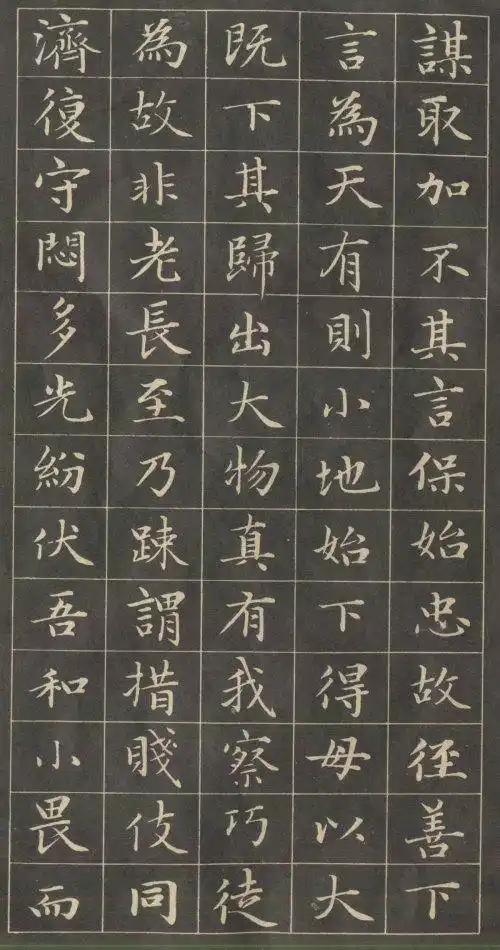 謀取加不其言保始忠故径善下
言為天有則小地始下得毋以大
既下其歸出大物真有我察巧徒
為故非老長至乃踈謂措賤伎同
濟復守悶多光紛伏吾和小畏而